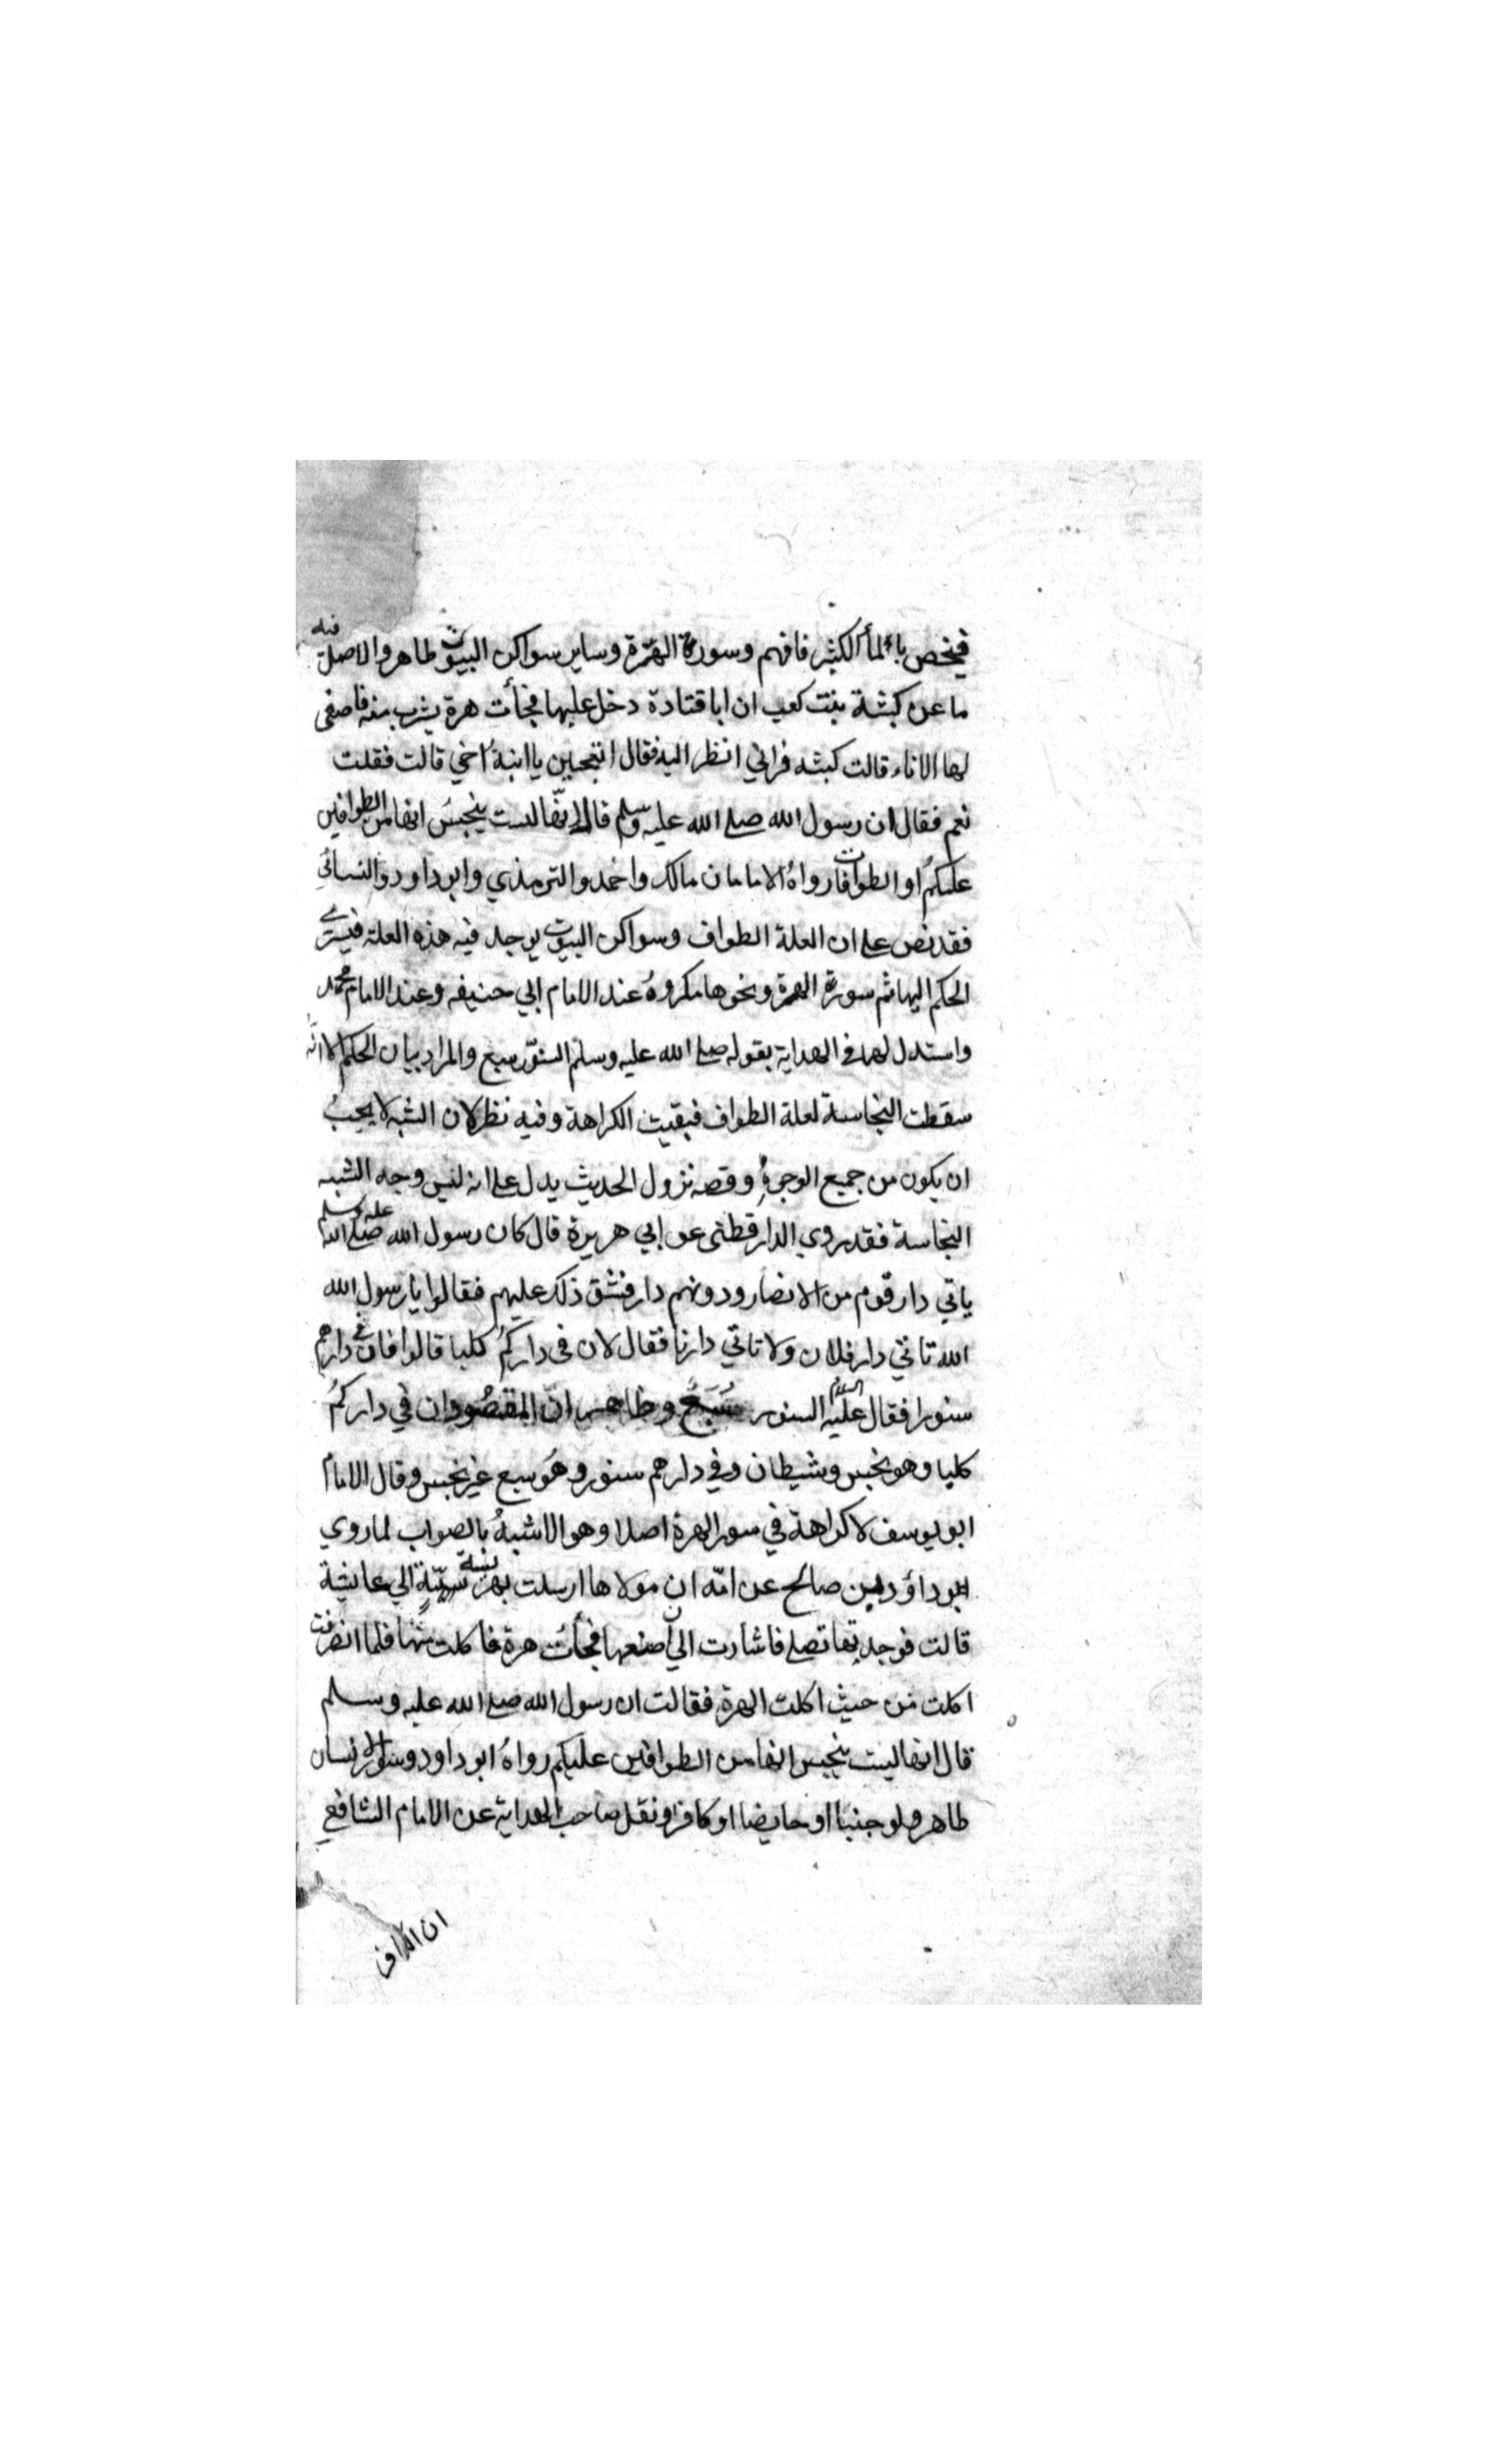 فيخص بالماء الكثير فافهم وسورة الهرة وساير سواكن البيوت طاهر والاصل فيه
ما عن كبشة بنت كعب ان ابا قتادة دخل عليها فجأت هرة يشرب منه فاصفى
لها الاناء قالت كبشه فراني انظر اليه فقال اتعجبين يا ابنة اخي قالت فقلت
نعم فقال ان رسول الله صلى الله عليه وسلم قال انها ليست بنجس انها من الطوافين
عليكم او الطوافات رواه الامامان مالك واحمد والترمذي وابو داود والنسائي
فقد نص على ان العلة الطواف وسواكن البيوت يوجد فيه هذه العلة فيسرى
الحكم اليها ثم سورة الهرة ونحوها مكروه عند الامام ابي حنيفه وعند الامام محمد
واستدل لهما في الهداية بقوله صلى الله عليه وسلم السنور سبع والمراد بيان الحكم الا انه
سقطت النجاسة لعلة الطواف فبقيت الكراهة وفيه نظر لان الشبه لا يجب
ان يكون من جميع الوجوه وقصه نزول الحديث يدل على انه ليس وجه الشبه
النجاسة فقد روي الدارقطنى عن ابي هريرة قال كان رسول الله صلى الله عليه وسلم
ياتي دار قوم من الانصار ودونهم دار فشق ذلك عليهم فقالوا يا رسول الله
الله تاتي دار فلان ولا تاتي دارنا فقال لان فى داركم كلبا قالوا فان في دارهم
سنورا فقال عليه السلام السنور سبع وظاهر ان المقصود ان في داركم
كلبا وهو نجس وشيطان وفي دارهم سنور وهو سبع غير نجس وقال الامام
ابو يوسف لا كراهة في سور الهرة اصلا وهو الاشبه بالصواب لما روي
ابو داؤد بن صالح عن امه ان مولاها ارسلت بهريسة الي عايشة
قالت فوجدتها تصلى فاشارت الي ان اصنعها فجأت هرة فاكلت منها فلما انصرفت
اكلت من حيث اكلت الهرة فقالت ان رسول الله صلى الله عليه وسلم
قال انها ليست بنجس انها من الطوافين عليكم رواه ابو داود وسور الانسان
طاهر ولو جنبا او حايضا او كافرا ونقل صاحب الهداية عن الامام الشافعي